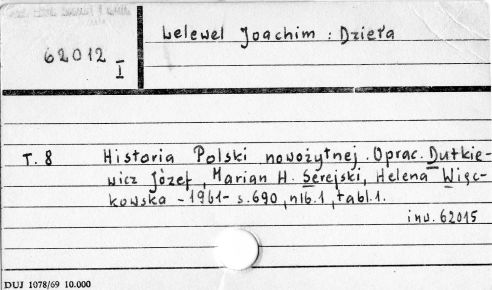 Lelewel Joachim : Dzieła
62012
I
T. 8 Historia Polski nowożytnej. Oprac. Dutkie-
wicz Józef, Marian H. Serejski, Helena Więc-
kowska - 1961 - s. 690, nlb. 1, tabl. 1.
inw. 62015
DUJ 1078/69 10.000